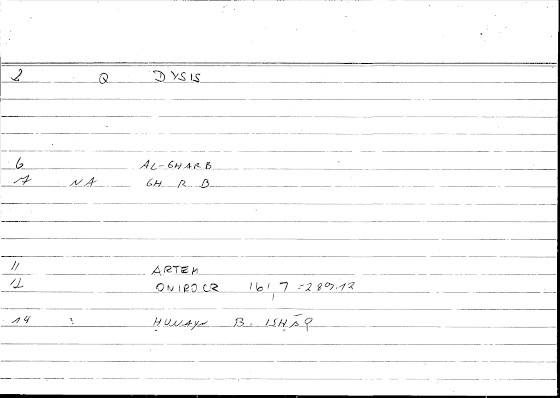 8 Q DYSIS
6 AL-GHARB
7 NA GH R B
11 ARTEM
12 ONIROCR 161,7 = 289.12
14 : ḤUNAYN B. ISḤĀQ